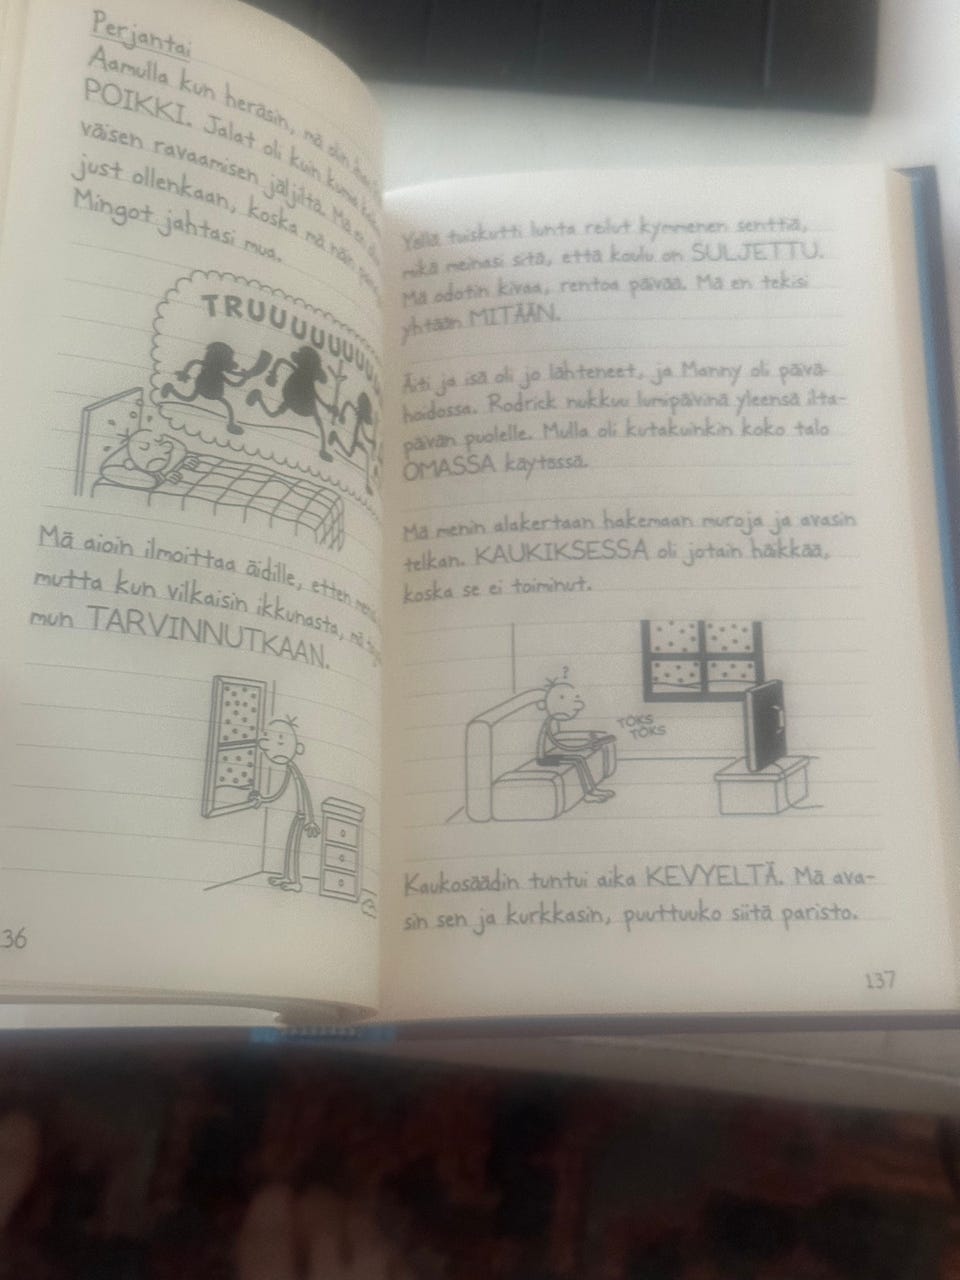 Perjantai
Aamulla kun heräsin, mä olin
POIKKI. Jalat oli kuin
väisen ravaamisen jäljiltä. Mä en
just ollenkaan, koska mä näin
Mingot jahtasi mua.
TRUUUUUUUUU
Mä aioin ilmoittaa äidille, etten
mutta kun vilkaisin ikkunasta, mä
mun TARVINNUTKAAN.
36
Yöllä tuiskutti lunta reilut kymmenen senttiä,
mikä meinasi sitä, että koulu on SULJETTU.
Mä odotin kivaa, rentoa päivää. Mä en tekisi
yhtään MITÄÄN.
Äiti ja isä oli jo lähteneet, ja Manny oli päivä-
hoidossa. Rodrick nukkuu lumipäivinä yleensä ilta-
päivän puolelle. Mulla oli kutakuinkin koko talo
OMASSA käytössä.
Mä menin alakertaan hakemaan muroja ja avasin
telkan. KAUKIKSESSA oli jotain häikkää,
koska se ei toiminut.
?
TÖKS
TÖKS
Kaukosäädin tuntui aika KEVYELTÄ. Mä ava-
sin sen ja kurkkasin, puuttuuko siitä paristo.
137